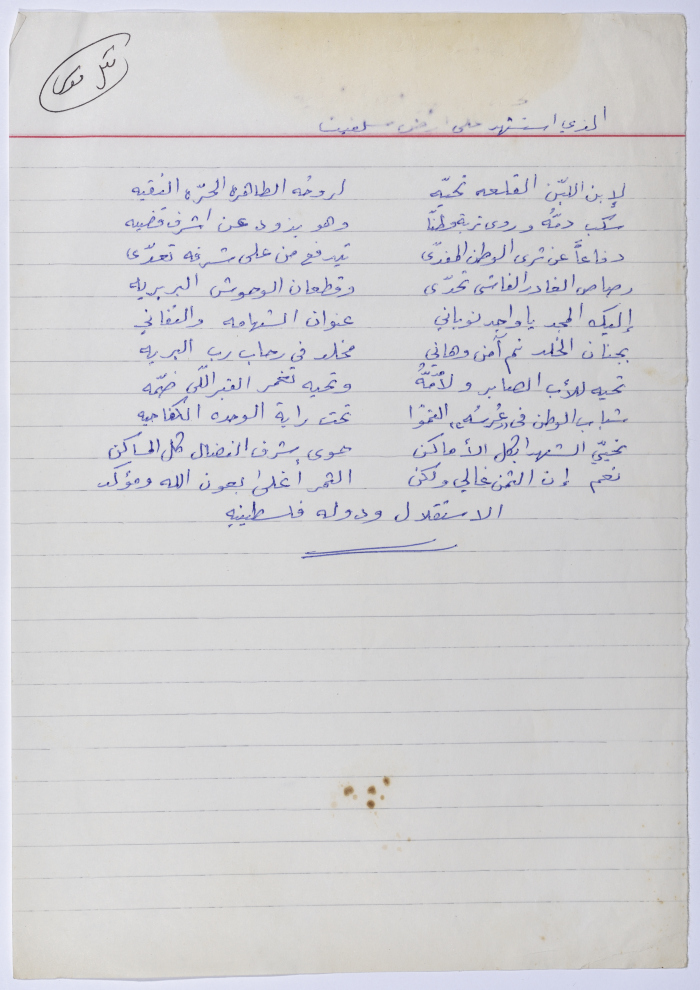 الذي استشهد على أرض سلفيت
لإبن اللبّن القلعه تحيّه لروحُه الطاهره الحرّه النقيه
سكب دمُّه وروى تربة وطنّا وهو يذود عن اشرف قضيه
دفاعاً عن ثرى الوطن المفدّى تيدفع من على شرفه تعدّى
رصاص الغادر الفاشي تحدّى وقطعان الوحوش البربريه
إليك المجد يا واجد نوباني عنوان الشهامه والتفاني
بجنان الخُلد نم آمن وهاني مخلد في رحاب رب البريه
تحيه للأب الصابر ولأمُّهُ وتحيه تغمر القبر اللّي ضمّه
شباب الوطن في عُرسُه التمّوا تحت راية الوحده الكفاحيه
نحيّي الشهدا بكل الأماكن حموى بشرف النضال كل المساكن
نعم إن الثمن غالي ولكن الثمر أغلى بعون الله ومؤكد
الاستقلال ودوله فلسطينيه